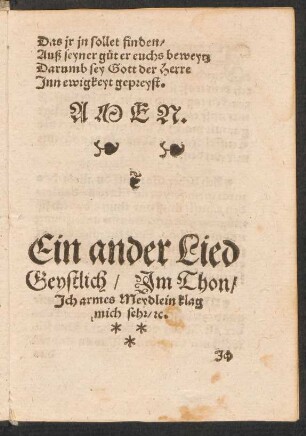 Das jr jn sollet finden/
Auß seyner güt er euchs beweyß
Darumb sey Gott der Herre
Jnn ewigkeyt gepreyst.
AMEN.
Ein ander Lied
Geystlich/ Jm Thon/
Jch armes Meydlein klag
mich sehr/ ꝛc.
* *
*
Jch